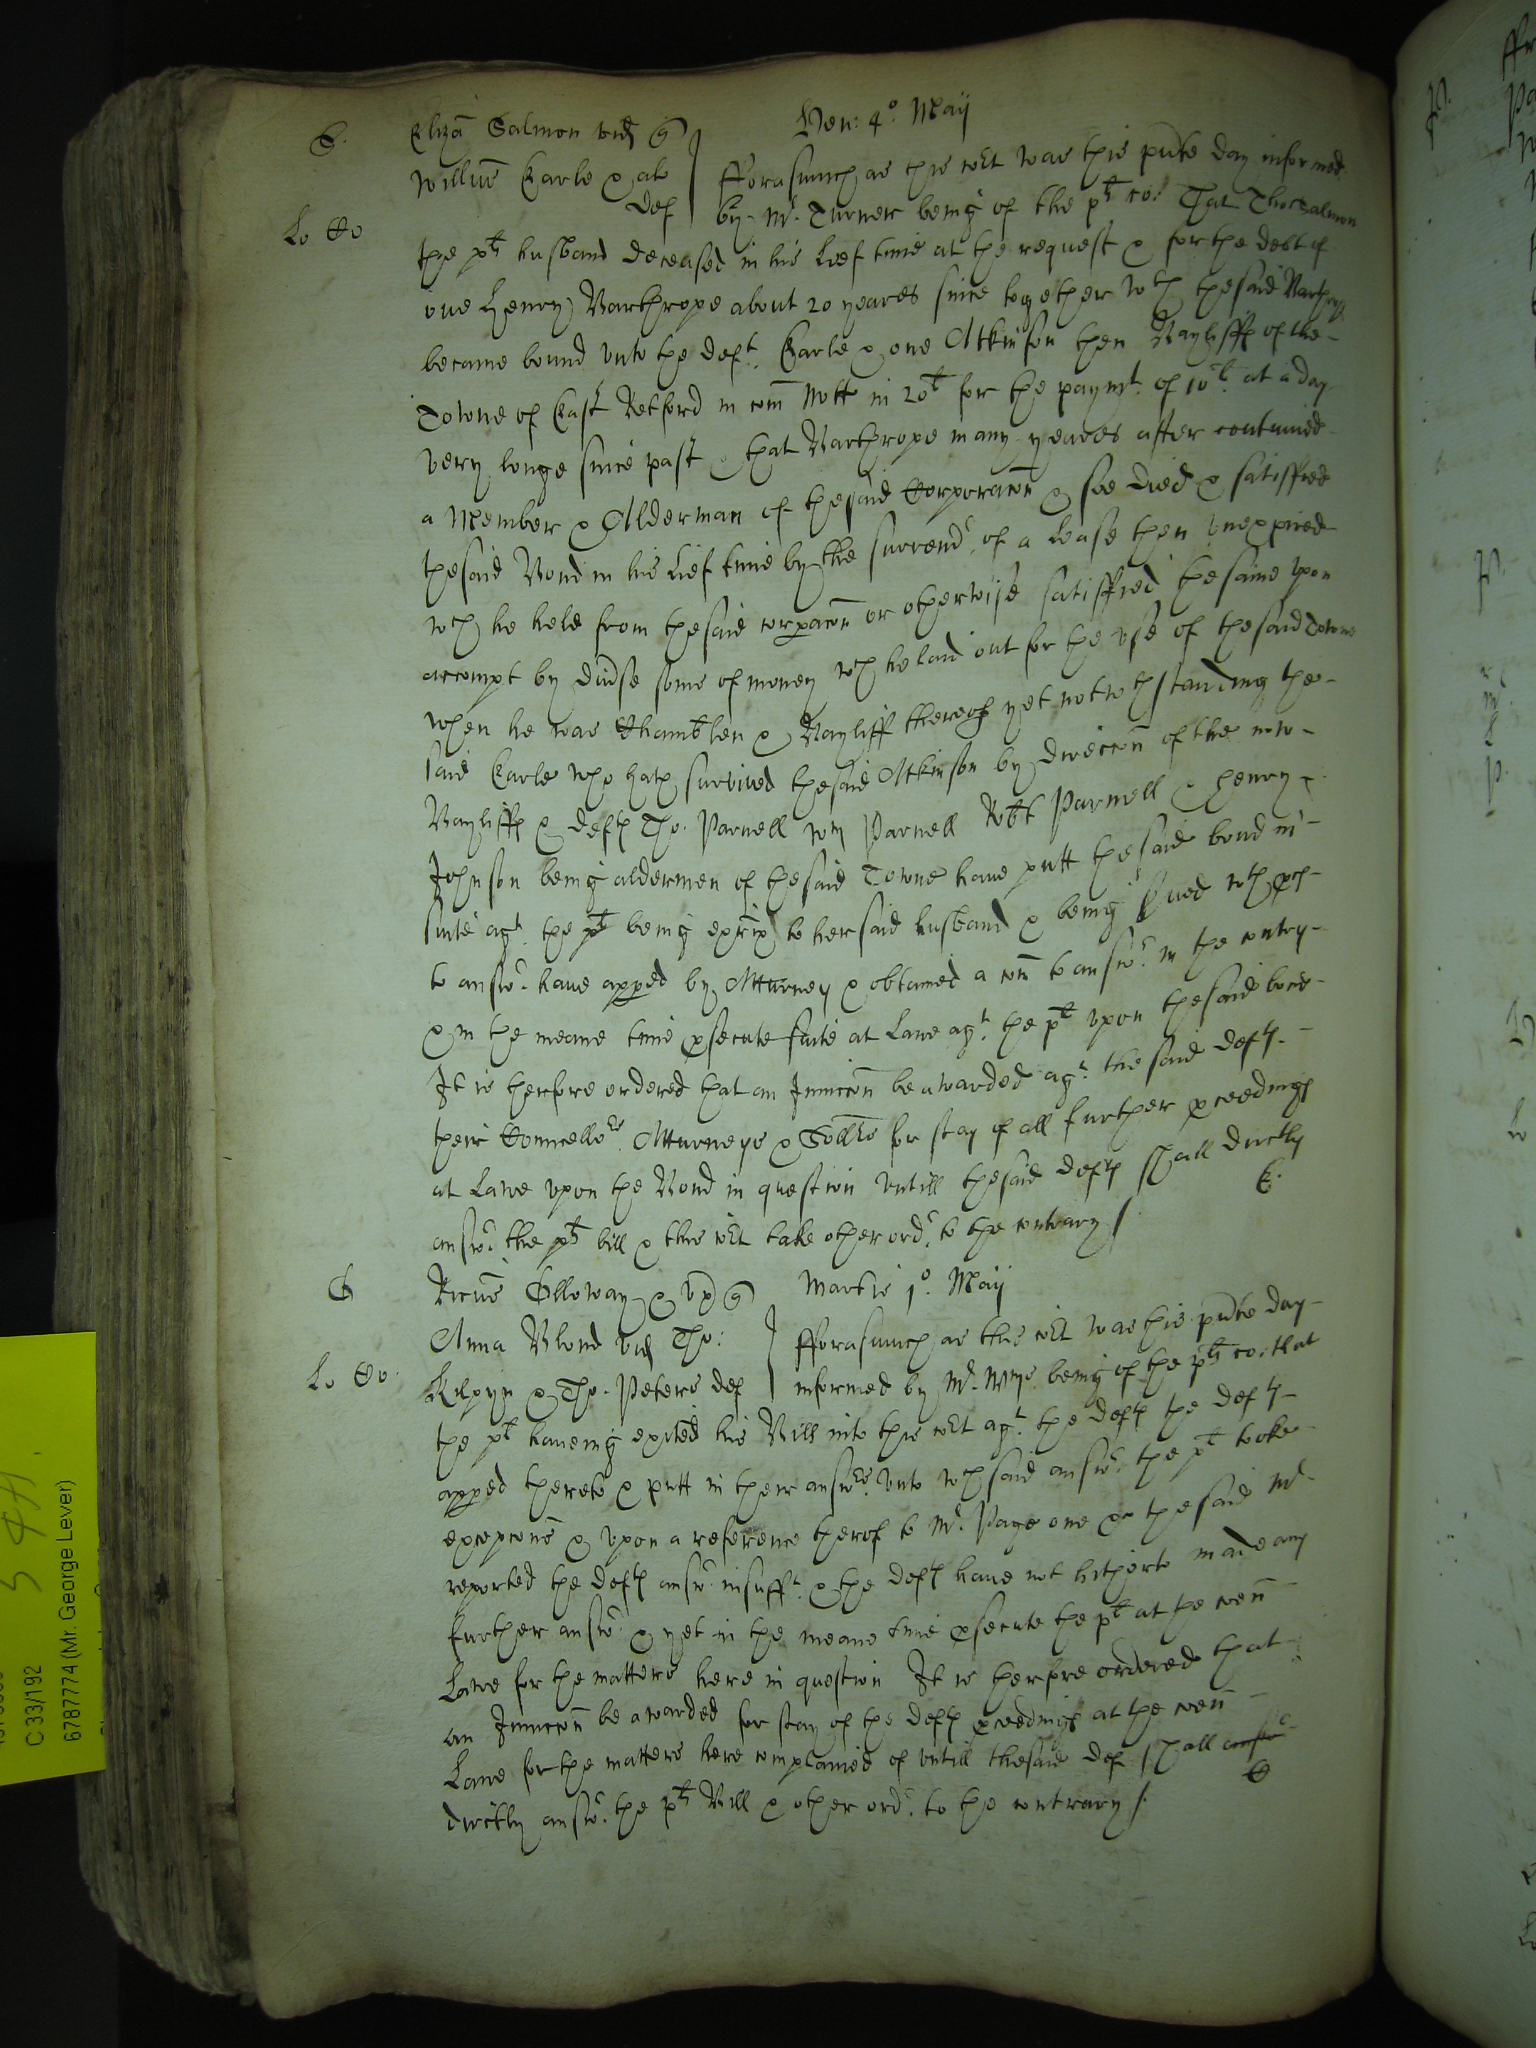 S. Eliza Salmon vid q Ven: 4o. Maij
Willus Earle & als fforasmuch as this cort was this pnte day informed
Lo Co def by Mr. Turner being of the plts co: That Tho: Salmon
the plts husband deceased in his Leif time at the request & for the debt of
one Henry Barthrope about 20 yeares since together wth the said Barthropp
became bound vnto the deft. Earle & one Atkinson then Bayliffs of the
Towne of East Retford in com Nott in 20l for the paymt. of 10l. at a day
very longe since past & that Barthrope many yeares after contynued
a Member & Alderman of the said Corporacon & soe died & satisffied
the said Bond in his Lief time by the surrendr. of a Lease then vnexpired
wch he held from the said corpacon or otherwise satisffied the same vpon
accompt by divse some of money wch he laid out for the vse of the said Towne
when he was Chamblen & Bayliff thereof yet notwthstanding the
said Earle who hath survived the said Atkinson by direccon of the now
Bayliffs & defts Tho. Parnell Wm Parnell Robt Parnell & Henry
Johnson being aldermen of the said Towne have putt the said bond in
suite agt. the plt being exrix to her said husband & being sved wth pces
to answr. have apped by Atturney & obtained a com to answr. in the contry
& in the meane time psecute suite at Lawe agt. the plt vpon the said bond
It is therfore ordered that an Iniuccon be awarded agt. the said defts.
their Councellors. Atturneys & Sollrs for stay of all further pceedings
at Lawe vpon the Bond in question vntill the said defts shall dirctly
answr. the plts bill & this cort take other ordr. to the contrary /. E.
G Ricus Olloway & vx q Martis 1o. Maij
Anna Blond vid Tho: fforasmuch as this cort was this pnte day
Lo Co. Kilpyn & Tho. Peters def informed by Mr. being of the plts co: that
the plt haveing exited his Bill into this cort agt. the defts the defts
apped thereto & putt in their answrs. vnto wch said answr. the plt tooke
excepcons & vpon a reference therof to Mr. Page one &c the said Mr.
reported the defts answr. insufft. & the defts have not hitherto made any
further answr. & yet in the meane time psecute the plt at the coen
Lawe for the matters here in question It is therfore ordered that
an Iniuccon be awarded for stay of the defts pceedings at the coen
Lawe for the matters here complained of vntill the said def shall answr
dirctly answr. the plts Bill & other ordr. to the contrary /. E
C 33/192
6787774 (Mr. George Lever)